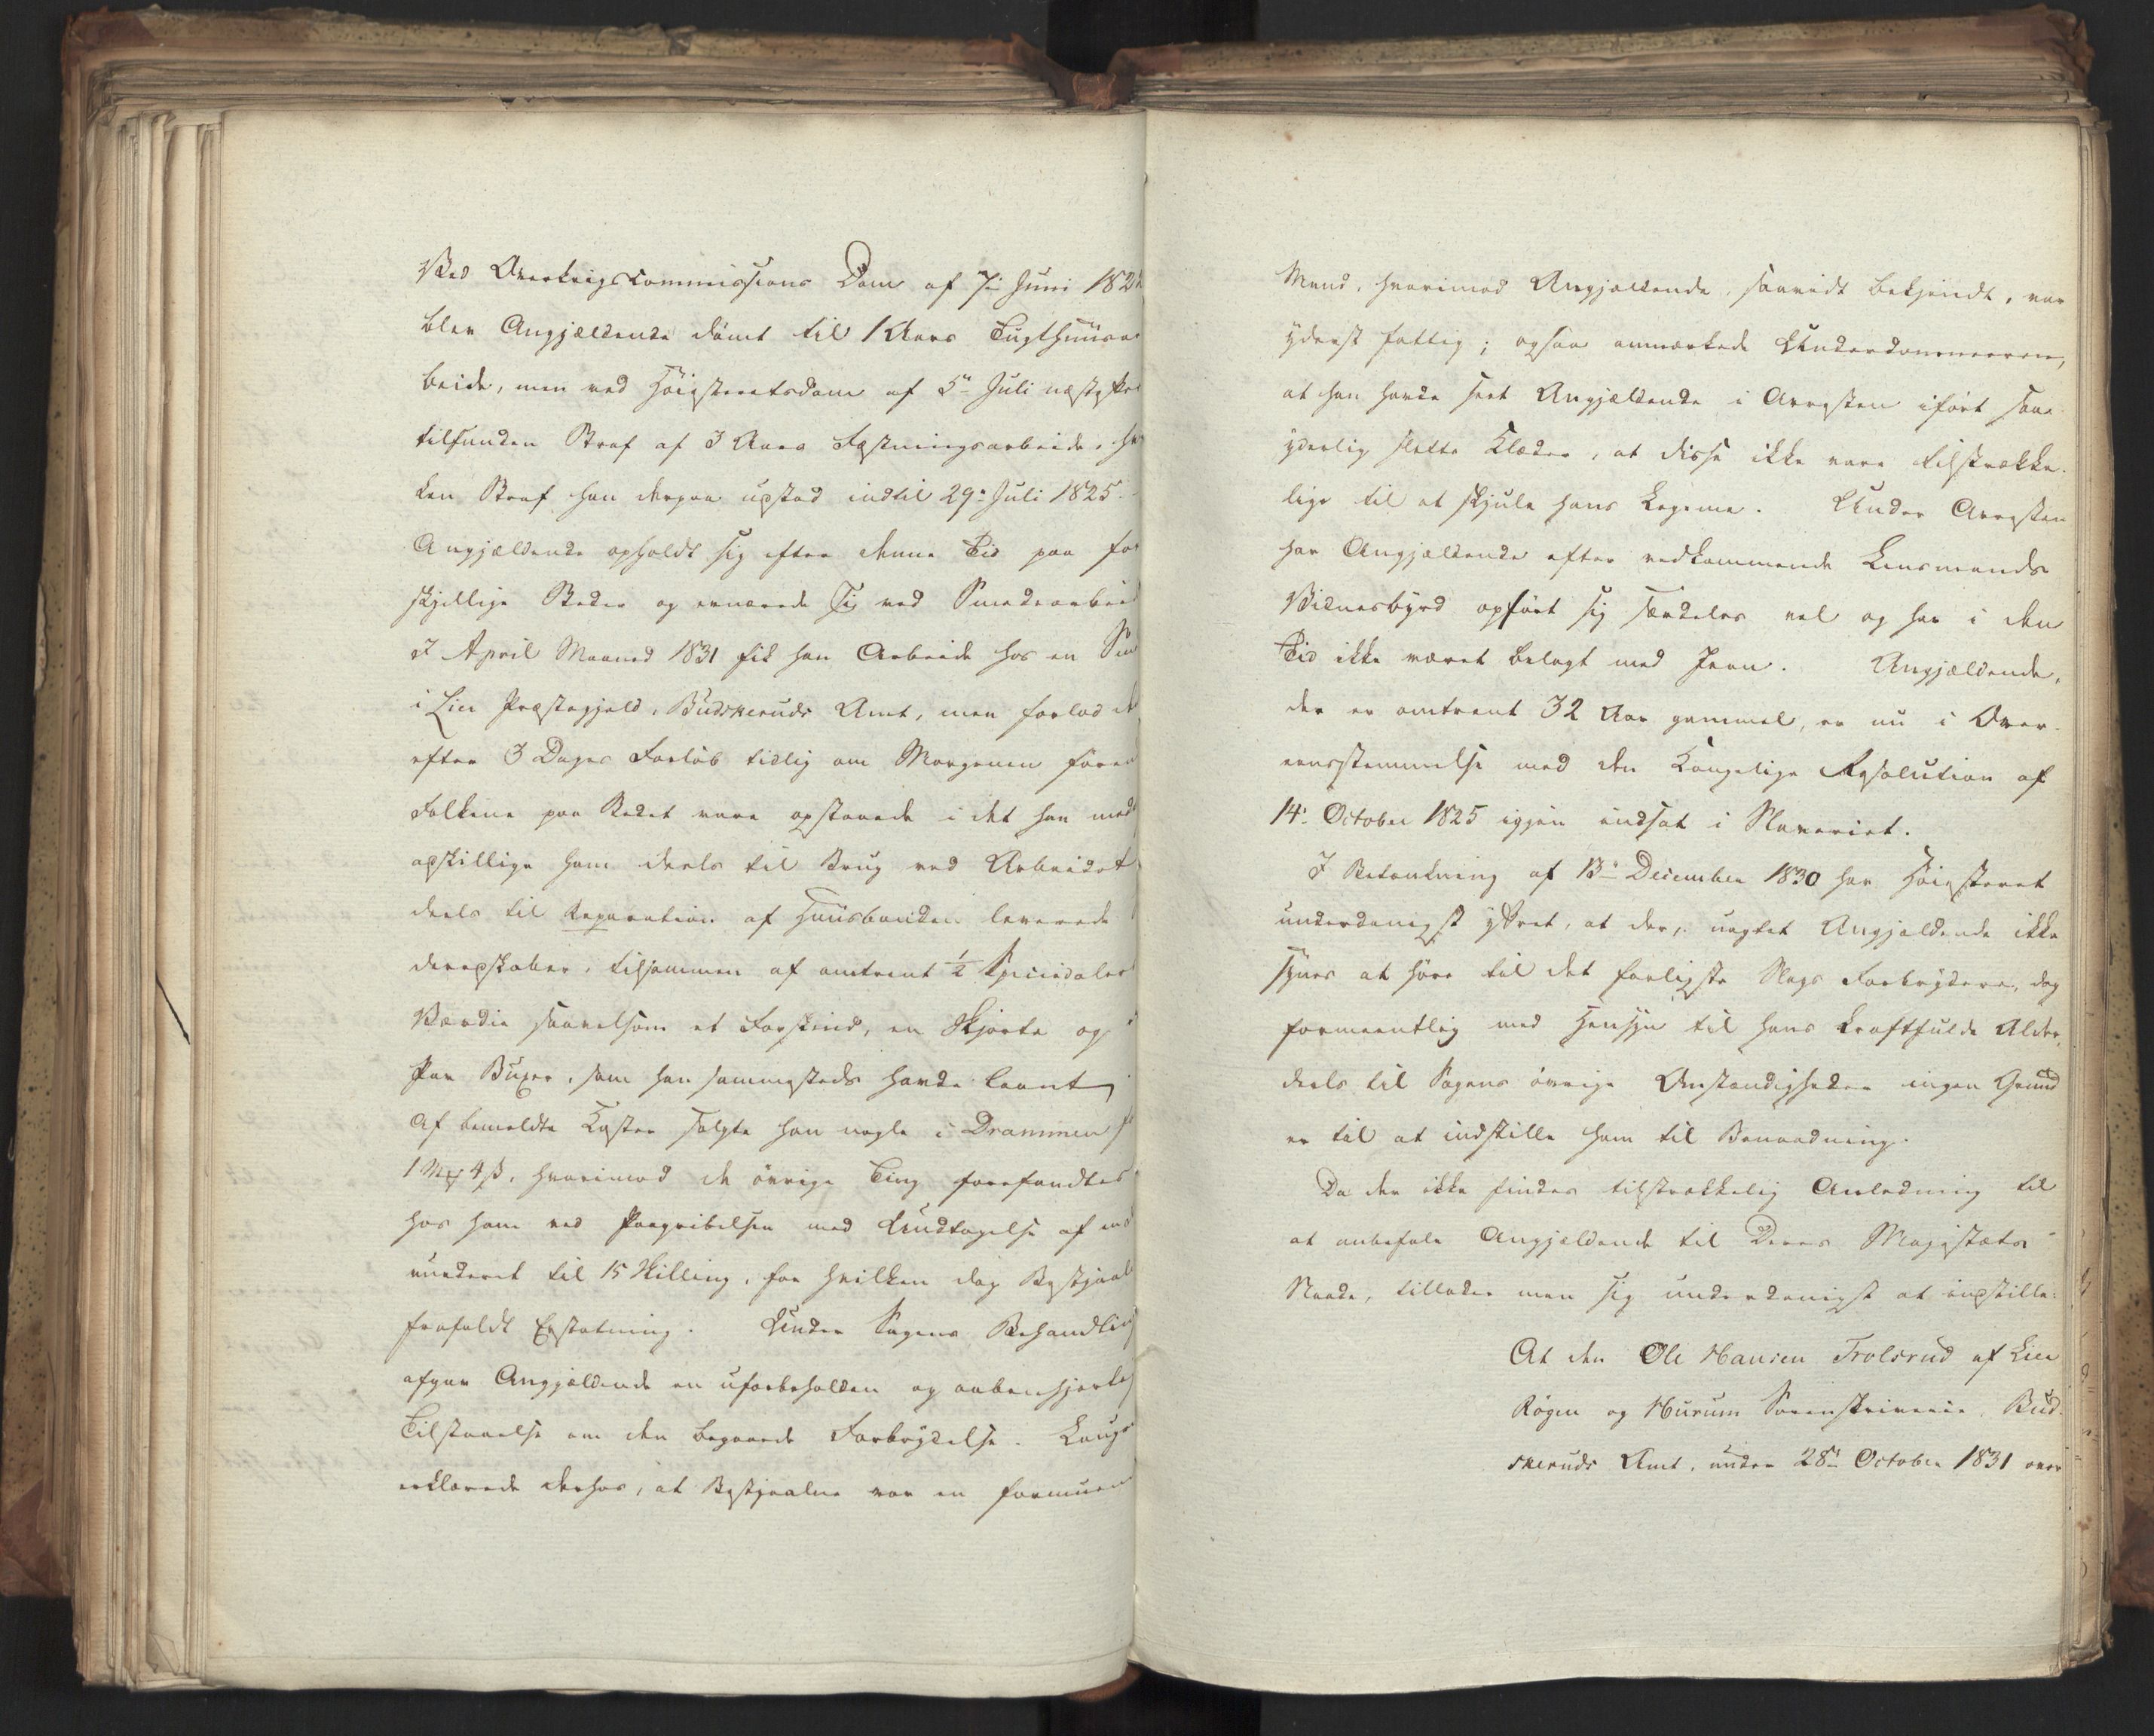 Ved Overkrigscommissions Dom af 7de Juni 182
blev Angjældende dömt til 1 Aars Tugthuusar
beide, men ved Höiesteretsdom af 5te Juli næstefter
tilfunden Straf af 3 Aars Fæstningsarbeide, hvil
ken Straf han derpaa udstod indtil 29de Juli 1825.
Angjældende opholdt sig efter denne Tid paa for
skjellige Steder og ernærede sig ved Smedearbeid
I April Maaned 1831 fik han Arbeide hos en
i Lier Præstegjeld, Budskeruds Amt, men forlod
efter 3 Dages Forløb tidlig om Morgenen føren
Folkene paa Stedet vare opstaaede i det han med
adskillige ham deels til Brug ved Arbeidet
deels til Reparation af Huusbonden leverede
deredskaber, tilsammen af omtrent ½ Speciedalers
Værdie saavelsom et Forskind, en Skjorte og
Par Buxer, som han sammesteds havde laant
Af bemeldte Koster solgte han nogle i Drammen
1 Mrk 4 ß, hvorimod de övrige Ting forefandtes
hos ham ved Paagribelsen med Undtagelse af
vurderet til 15 Skilling, for hvilken dog Bestjaal
frafaldt Erstatning. Under Sagens Behandling
afgav Angjældende en uforbeholden og aabenhjertet
Tilstaaelse om den begaaede Forbrydelse.
erklærede derhos, at Bestjaalne var en formuen
Mand, hvorimod Angjældende, saavidt bekjendt, var
yderst fattig; ogsaa anmærkede Underdommeren,
at han havde seet Angjældende i Arresten iført saa
yderlig slette Klæder, at disse ikke vare tilstrække-
lige til at skjule hans Legeme. Under Arresten
har Angjældende efter vedkommende Lensmands
Vidnesbyrd opført sig særdeles vel og har i den
Tid ikke været belagt med Jern. Angjældende,
der er omtrent 32 Aar gammel, er nu i Over-
eensstemmelse med den Kongelige Resolution af
14de October 1825 igjen indsat i Slaveriet.
I Betænkning af 13de December 1830 har Höiesteret
underdanigst yttret, at der, uagtet Angjældende ikke
synes at høre til det farligste Slags Forbrydere, dog
formeentlig med Hensyn til hans kraftfulde Alder,
deels til Sagens övrige Omstændigheder ingen Grund
er til at indstille ham til Benaadning.
Da der ikke findes tilstrækkelig Anledning til
at anbefale Angjældende til Deres Majestæts
Naade, tillader man sig underdanigst at indstille:
At den Ole Hansen Trolsrud af Lier
Røgen og Hurum Sorenskriverie, Bud-
skeruds Amt, under 28de October 1831 over